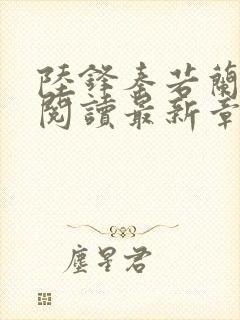 陸鋒秦若蘭
閱讀最新章
塵星君